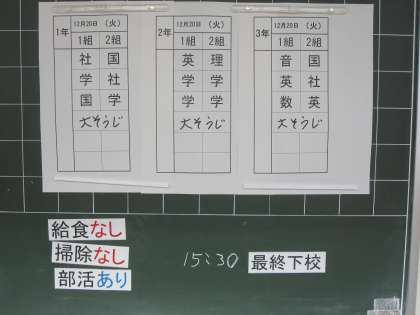 1年
12月20日 (火)
1組 2組
社 国
学 社
国 学
大そうじ
2年
12月20日 (火)
1組 2組
英 理
学 学
学 学
大そうじ
3年
12月20日 (火)
1組 2組
音 国
英 社
数 英
大そうじ
給食なし
掃除なし
部活あり
15:30 最終下校